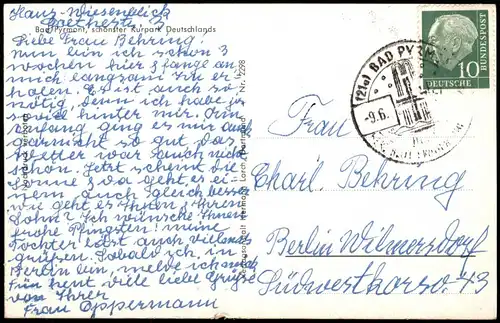 Haus Wiesenblick
Goethestr. 2
Bad Pyrmont, schönster Kurpark Deutschlands
Liebe Frau Behring!
Nun bin ich schon 3
wochen hier & fange an
mich langsam zu er
holen. Er ist auch so
nötig, denn ich habe ja
soviel hinter mir. Im
anfang ging es mir auch
garnicht so gut das
Wetter war auch nicht
schön. Jetzt scheint die
Sonne & da geht es ei
nem auch gleich besser
wie geht es Ihnen & Ihrem
Sohn? Ich wünsche Ihnen
frohe Pfingsten! meine
Tochter läßt auch vielmals
grüßen. Sobald ich, in
Berlin bin, melde ich mich
Für heut viele liebe Grüße
von Ihrer
Frau Oppermann
Nr. 2298
(21a) BAD PYRM
-9.6.
DEUTSCHE BUNDESPOST
10
Frau
Charl. Behring
Berlin Wilmersdorf
Südwestkorso 43